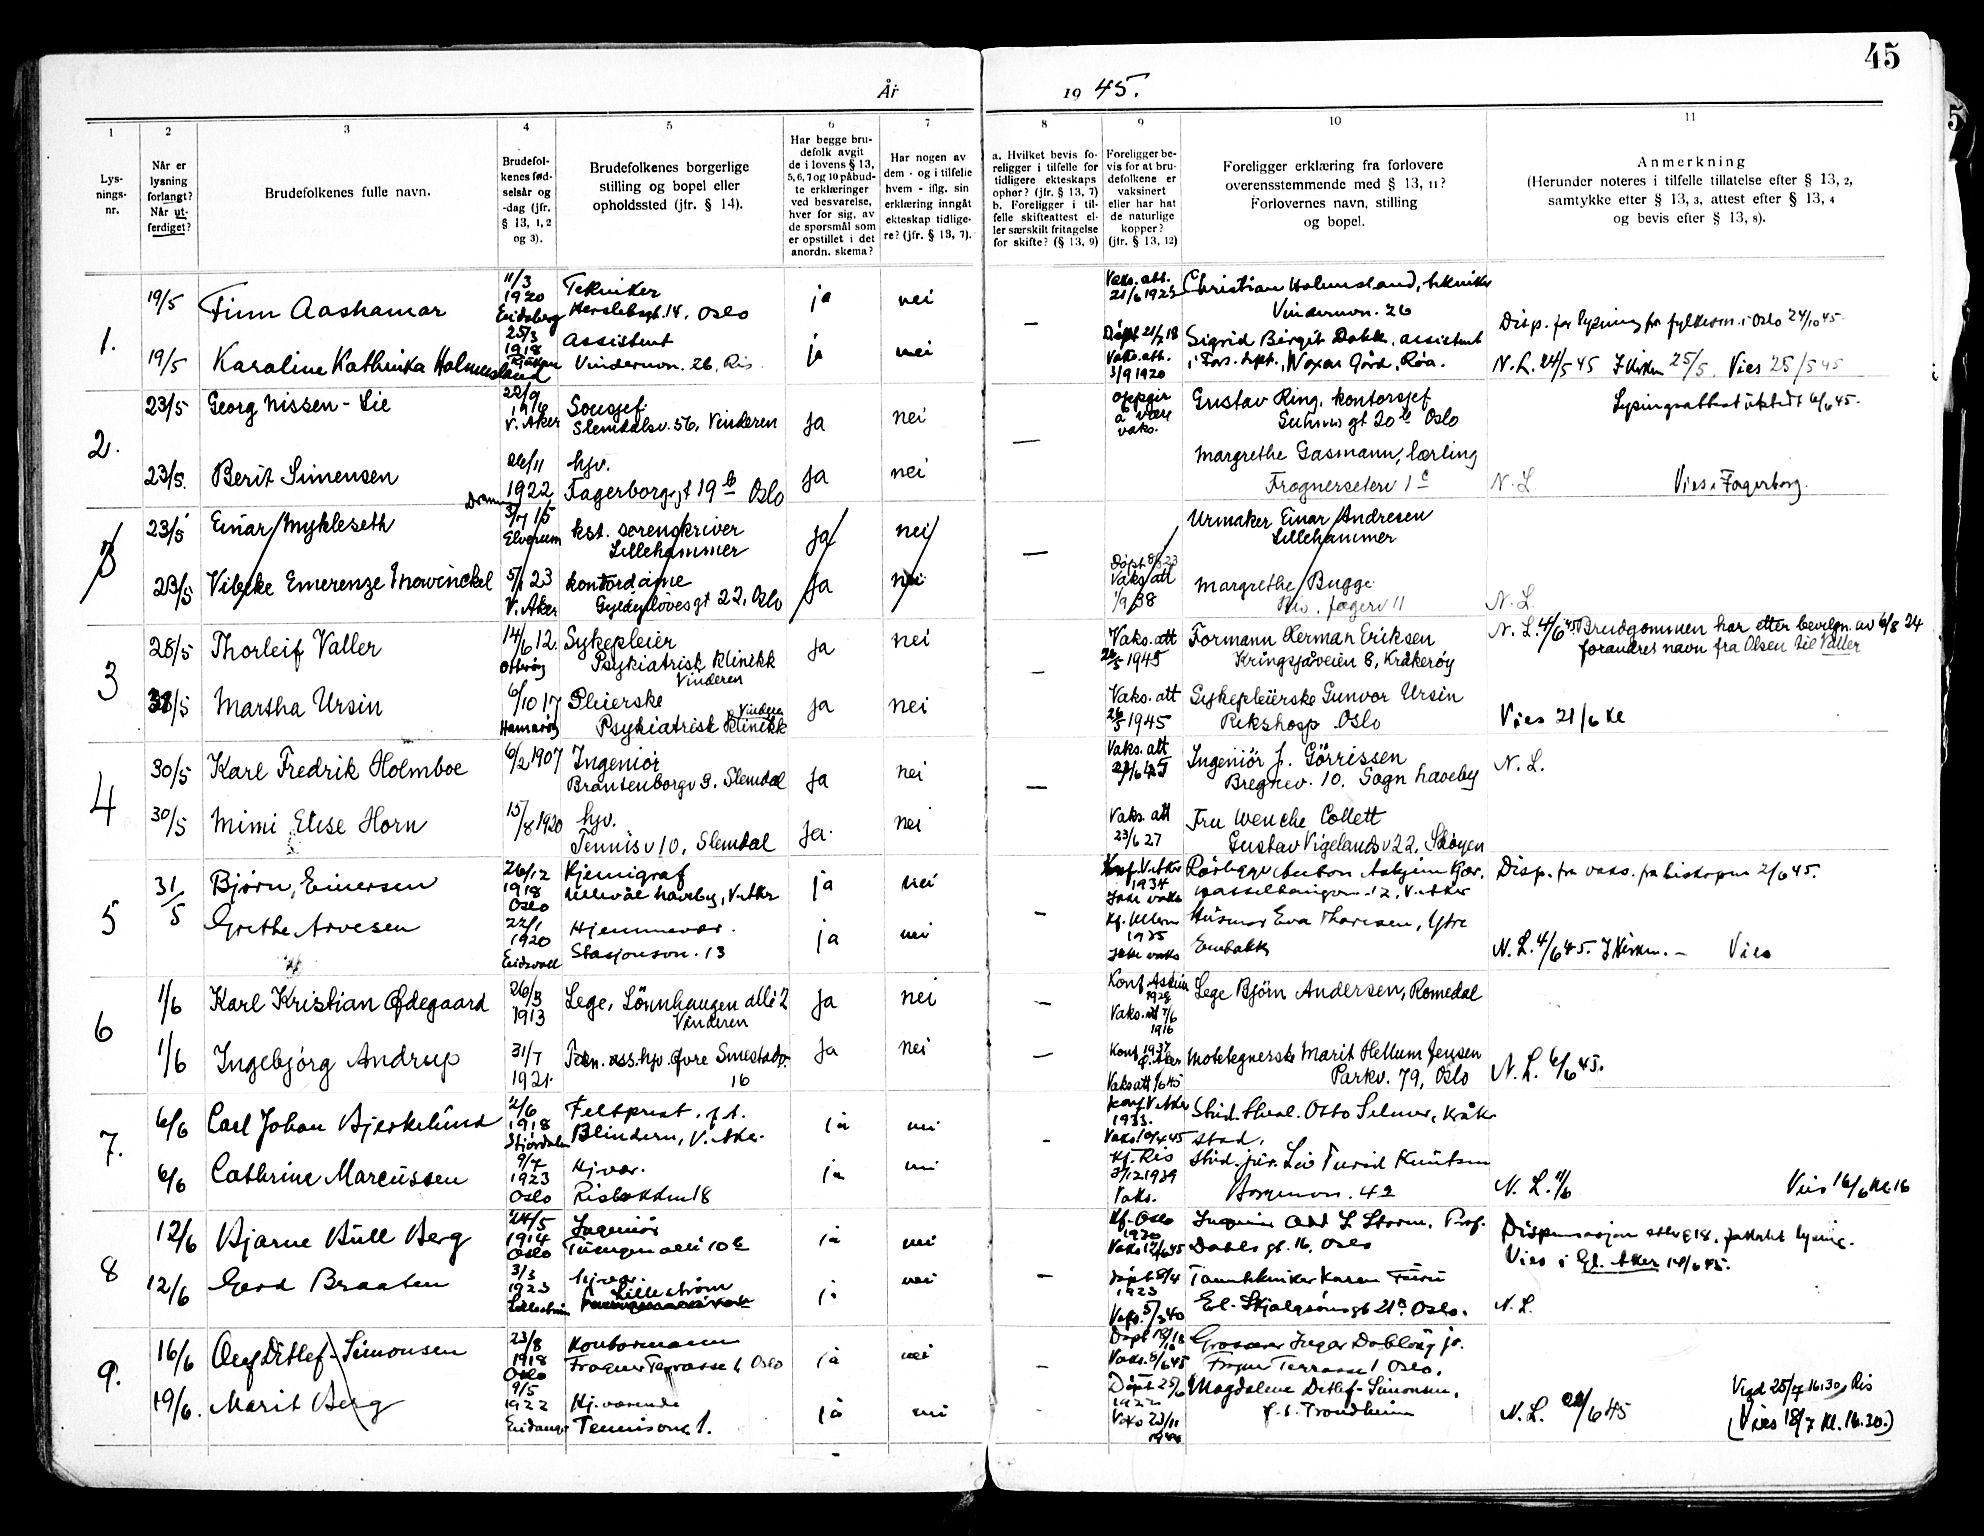 45
År 1945.
1
2
3
4
5
6
7
8
9
10
11
Lys-
nings-
nr.
Når er
lysning
forlangt?
Når ut-
ferdiget?
Brudefolkenes fulle navn.
Brudefol-
kenes fød-
selsår og
-dag (jfr.
§ 13, 1, 2
og 3).
Brudefolkenes borgerlige
stilling og bopel eller
opholdssted (jfr. § 14).
Har begge bru-
defolk avgit
de i lovens § 13,
5, 6, 7 og 10 påbud-
te erklæringer
ved besvarelse,
hver for sig, av
de spørsmål som
er opstillet i det
anordn. skema?
Har nogen av
dem - og i tilfelle
hvem - iflg. sin
erklæring inngått
ekteskap tidlige-
re? (jfr. § 13, 7).
a. Hvilket bevis fo-
religger i tilfelle for
tidligere ekteskaps
ophør? (jfr. § 13, 7)
b. Foreligger i til-
felle skifteattest el-
ler særskilt fritagelse
for skifte? (§ 13, 9)
Foreligger be-
vis for at bru-
defolkene er
vaksinert
eller har hat
de naturlige
kopper?
(jfr. § 13, 12)
Foreligger erklæring fra forlovere
overensstemmende med § 13, 11?
Forlovernes navn, stilling
og bopel.
Anmerkning
(Herunder noteres i tilfelle tillatelse efter § 13, 2,
samtykke etter § 13, 3, attest efter § 13, 4
og bevis efter § 13, 8).
1.
19/5 Finn Aashamar
11/3
1920
Eidsberg
Tekniker
Herslebsgt. 14, Oslo
ja nei
Vaks. att.
Christian Holmesland, tekniker
Vindernvn. 26
Disp. for lysning fra fylkesm. i Oslo 24/10 45.
19/5 Karoline Kathinka Holmesland
25/3
1918
Assistent
Vindernvn. 26, Ris.
ja nei
Døpt 21/7 18
Vaks. att.
3/9 1920
Sigrid Birgit Dokk, assistent
i Fors. dept., Woxen Gård, Røa.
N. L. 24/5 45 I kirken 25/5. Vies 25/5 45
2.
23/5 Georg Nissen-Lie
22/9
V. Aker
Sousjef
Slemdalsv. 56, Vinderen
ja nei
oppgir
å være
vaks.
Gustav Ring, kontorsjef
Suhms gt 20 b Oslo
Lysingsattest utstedt 6/6 45.
23/5. Berit Simensen
26/11
1922
hjv.
Fagerborggt 19 b Oslo
ja nei
Margrethe Gasmann, lærling
Frognerseterv 1 c
N. L. Vies i Fagerborg.
3
23/5 Einar Mykleseth
3/7 15
Elverum
kst. sorenskriver
Lillehammer
ja nei
Urmaker Einar Andresen
Lillehammer
23/5 Vibeke Emerenze Mowinckel
5/1 23
V. Aker
kontordame
Gyldenløvesgt 22, Oslo
ja nei
Vaks att
1/9 38
Margrethe Bugge
N. L.
3
28/5 Thorleif Valler
14/6 12.
Sykepleier
Psykiatrisk Klinikk
Vinderen
ja nei
Vaks. att
26/5 1945
Formann Herman Eriksen
Kringsjåveien 8, Kråkerøy
N. L. 4/6 45 Brudgommen har etter bevilgn. av 6/8 24
forandret navn fra Olsen til Valler
28/5 Martha Ursin
6/10 17
Hamarøy
Pleierske
Vinderen
Psykiatrisk Klinikk
ja nei
Vaks. att
26/5 1945
Sykepleierske Gunvor Ursin
Rikshosp. Oslo
Vies 21/6 kl
4
30/5 Karl Fredrik Holmboe
6/2 1907
Ingeniør
Brantenborgv 3. Slemdal
ja nei
Vaks. att
Ingeniør J. Görrissen
Bregnev. 10. Sogn haveby
N. L.
30/5 Mimi Elise Horn
15/8 1920
hjv.
Tennisv 10, Slemdal
ja. nei
Vaks. att
23/6 27
Fru Wenche Collett
Gustav Vigelandsv 22, Skøyen
5
31/5 Bjørn Einersen
26/12
1918
Oslo
Kjemigraf
Ullevål haveby, V. Aker
ja nei
Konf. V. Aker
1934
Ikke vaks
Disp. fra vaks. fra biskopen 2/6 45.
Grethe Arvesen
22/1
1920
Eidsvoll
Hjemmevær.
Stasjonsvn. 13
ja nei
Kf. Ullern
1935
Ikke vaks
Husmor Eva Thoresen, Ytre
Enebakk
N. L. 4/6 45. I kirken. – Vies
6
1/6 Karl Kristian Ødegaard
26/3
1913
Lege, Lönnhaugen allé 2
Vinderen
ja nei
Konf Askim
1928
Lege Björn Andersen, Romedal
1/6 Ingebjörg Andrup
31/7
1921.
Øvre Smestadv.
16
ja nei
Konf 1937
Vaks att
Motetegnerske Marit Hellum Jensen
Parkv. 79, Oslo
N. L. 6/6 45.
7.
6/6 Carl Johan Bjerkelund
2/6
1918
Stjørdalen
Feltprest. f. t.
Blindern, V. Aker.
ja nei
Konf V. Aker
1933.
Stud. theol. Otto Selmer, Kråk-
stad.
6/6 Cathrine Marcussen
9/7
1923
Oslo
Hj.vær.
Risbakken 18
ja nei
Kf. Ris
3/12 1939
Vaks.
Stud. jur. Liv Turid Knutsen
42
N. L. 11/6 Vies 16/6 kl. 16
8
12/6 Bjarne Bull Berg
24/5
1914
Oslo
Ingeniør
Tuengen allé 10 b
ja nei
Kf. Oslo
1930
Vaks 12/6 45
Ingeniør Odd L. Storm, Prof.
Dahls gt. 16, Oslo
Dispensasjon etter § 18, forkortet lysing.
Vies i Gl. Aker 14/6 45.
12/6 Gerd Braaten
3/3
1923
Lillestrøm
hj.vær.
Lillestrøm
ja nei
Døpt 8/4
1923
Tanntekniker Karen Furu
Erl. Skjalgsønsgt 21 a. Oslo.
N. L.
9.
16/6 Olef Ditlef-Simonsen
23/8
1918
Oslo
Kontormann
Frogner Terrasse 1, Oslo
ja nei
Vaks. 8/6 45
Grosserer Ingar Dobloug jr.
Frogner Terrasse 1 Oslo.
19/6. Marit Berg
9/5
1922
Eidanger
Hj.værende
Tennisvei 1.
ja nei
Døpt 25/6
1922
Magdalene Ditlef-Simonsen,
f. t. Trondheim
N. L. 22/6 45
Vigd 25/7 16.30, Ris
(Vies 18/7 kl. 16.30.)